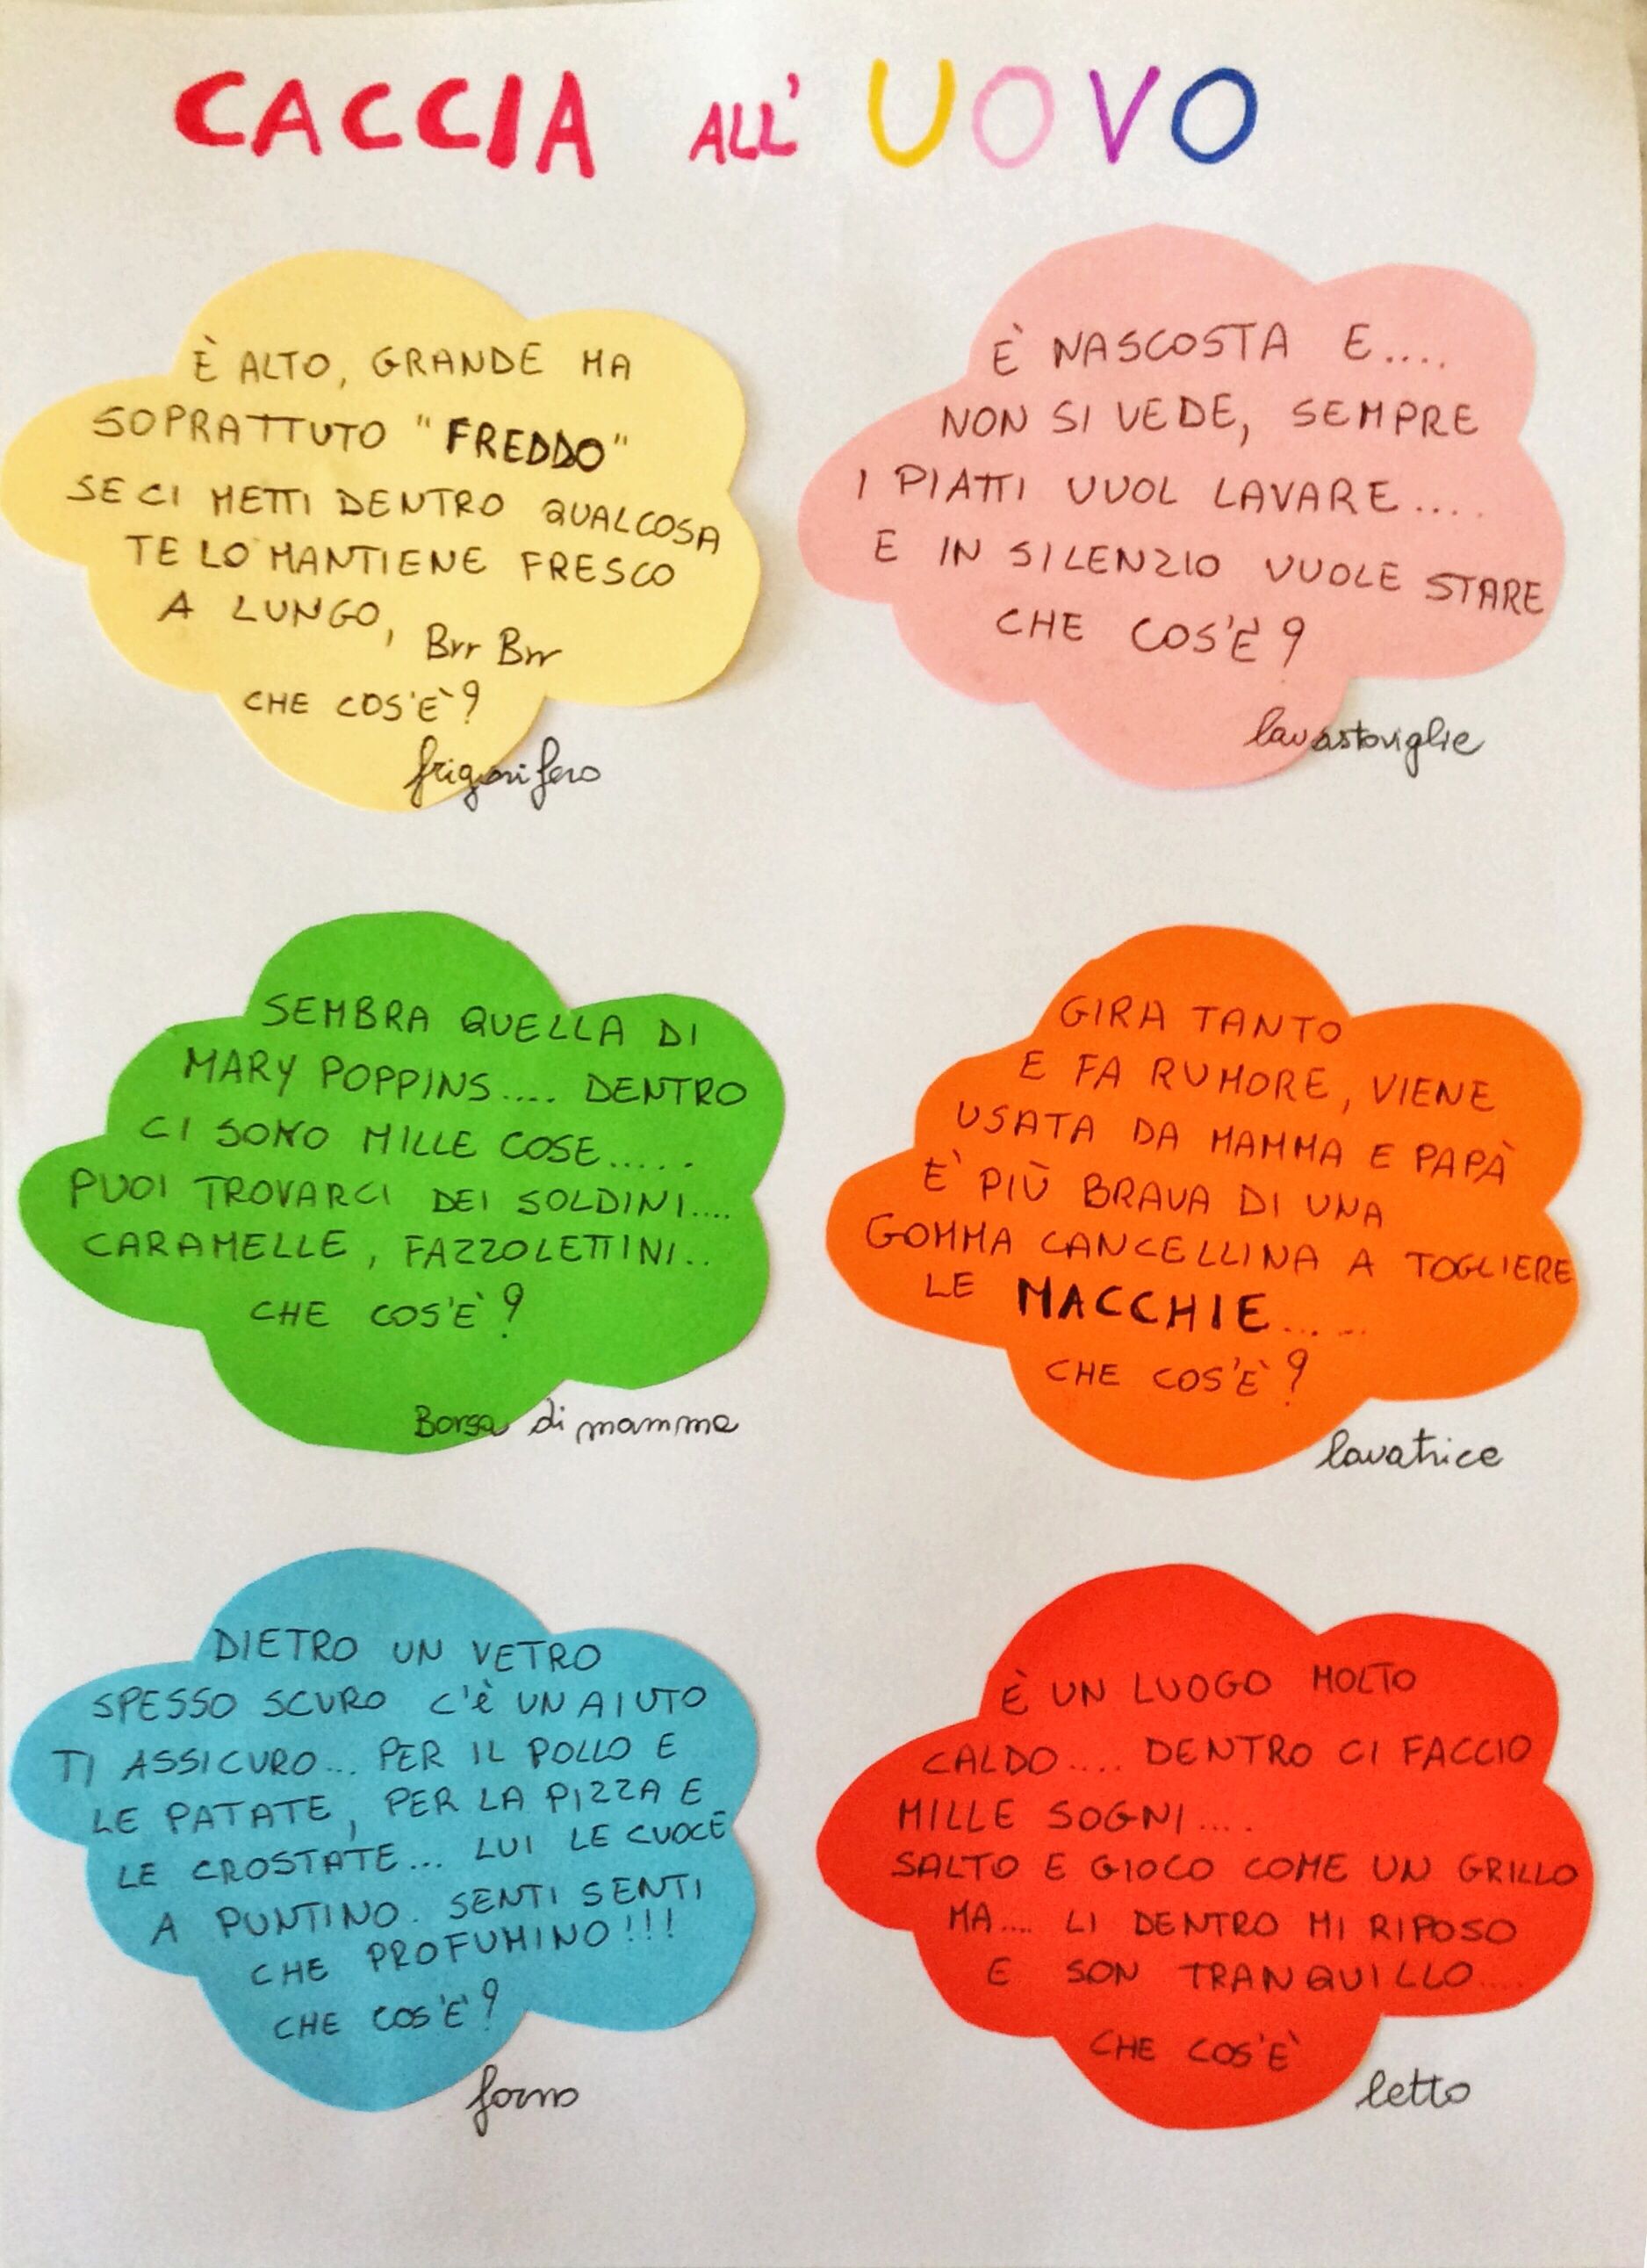 CACCIA ALL' UOVO
È ALTO, GRANDE MA
SOPRATTUTO "FREDDO"
SE CI METTI DENTRO QUALCOSA
TE LO MANTIENE FRESCO
A LUNGO, Brr Brr
CHE COS'È?
frigorifero
È NASCOSTA E....
NON SI VEDE, SEMPRE
I PIATTI VUOL LAVARE....
E IN SILENZIO VUOLE STARE
CHE COS'È?
lavastoviglie
SEMBRA QUELLA DI
MARY POPPINS.... DENTRO
CI SONO MILLE COSE.....
PUOI TROVARCI DEI SOLDINI....
CARAMELLE, FAZZOLETTINI..
CHE COS'È?
Borsa di mamma
GIRA TANTO
E FA RUMORE, VIENE
USATA DA MAMMA E PAPÀ
E' PIÙ BRAVA DI UNA
GOMMA CANCELLINA A TOGLIERE
LE MACCHIE.....
CHE COS'È?
lavatrice
DIETRO UN VETRO
SPESSO SCURO C'è UN AIUTO
TI ASSICURO... PER IL POLLO E
LE PATATE, PER LA PIZZA E
LE CROSTATE... LUI LE CUOCE
A PUNTINO. SENTI SENTI
CHE PROFUMINO!!!
CHE COS'E'?
forno
È UN LUOGO MOLTO
CALDO.... DENTRO CI FACCIO
MILLE SOGNI....
SALTO E GIOCO COME UN GRILLO
MA.... LI DENTRO MI RIPOSO
E SON TRANQUILLO....
CHE COS'È
letto